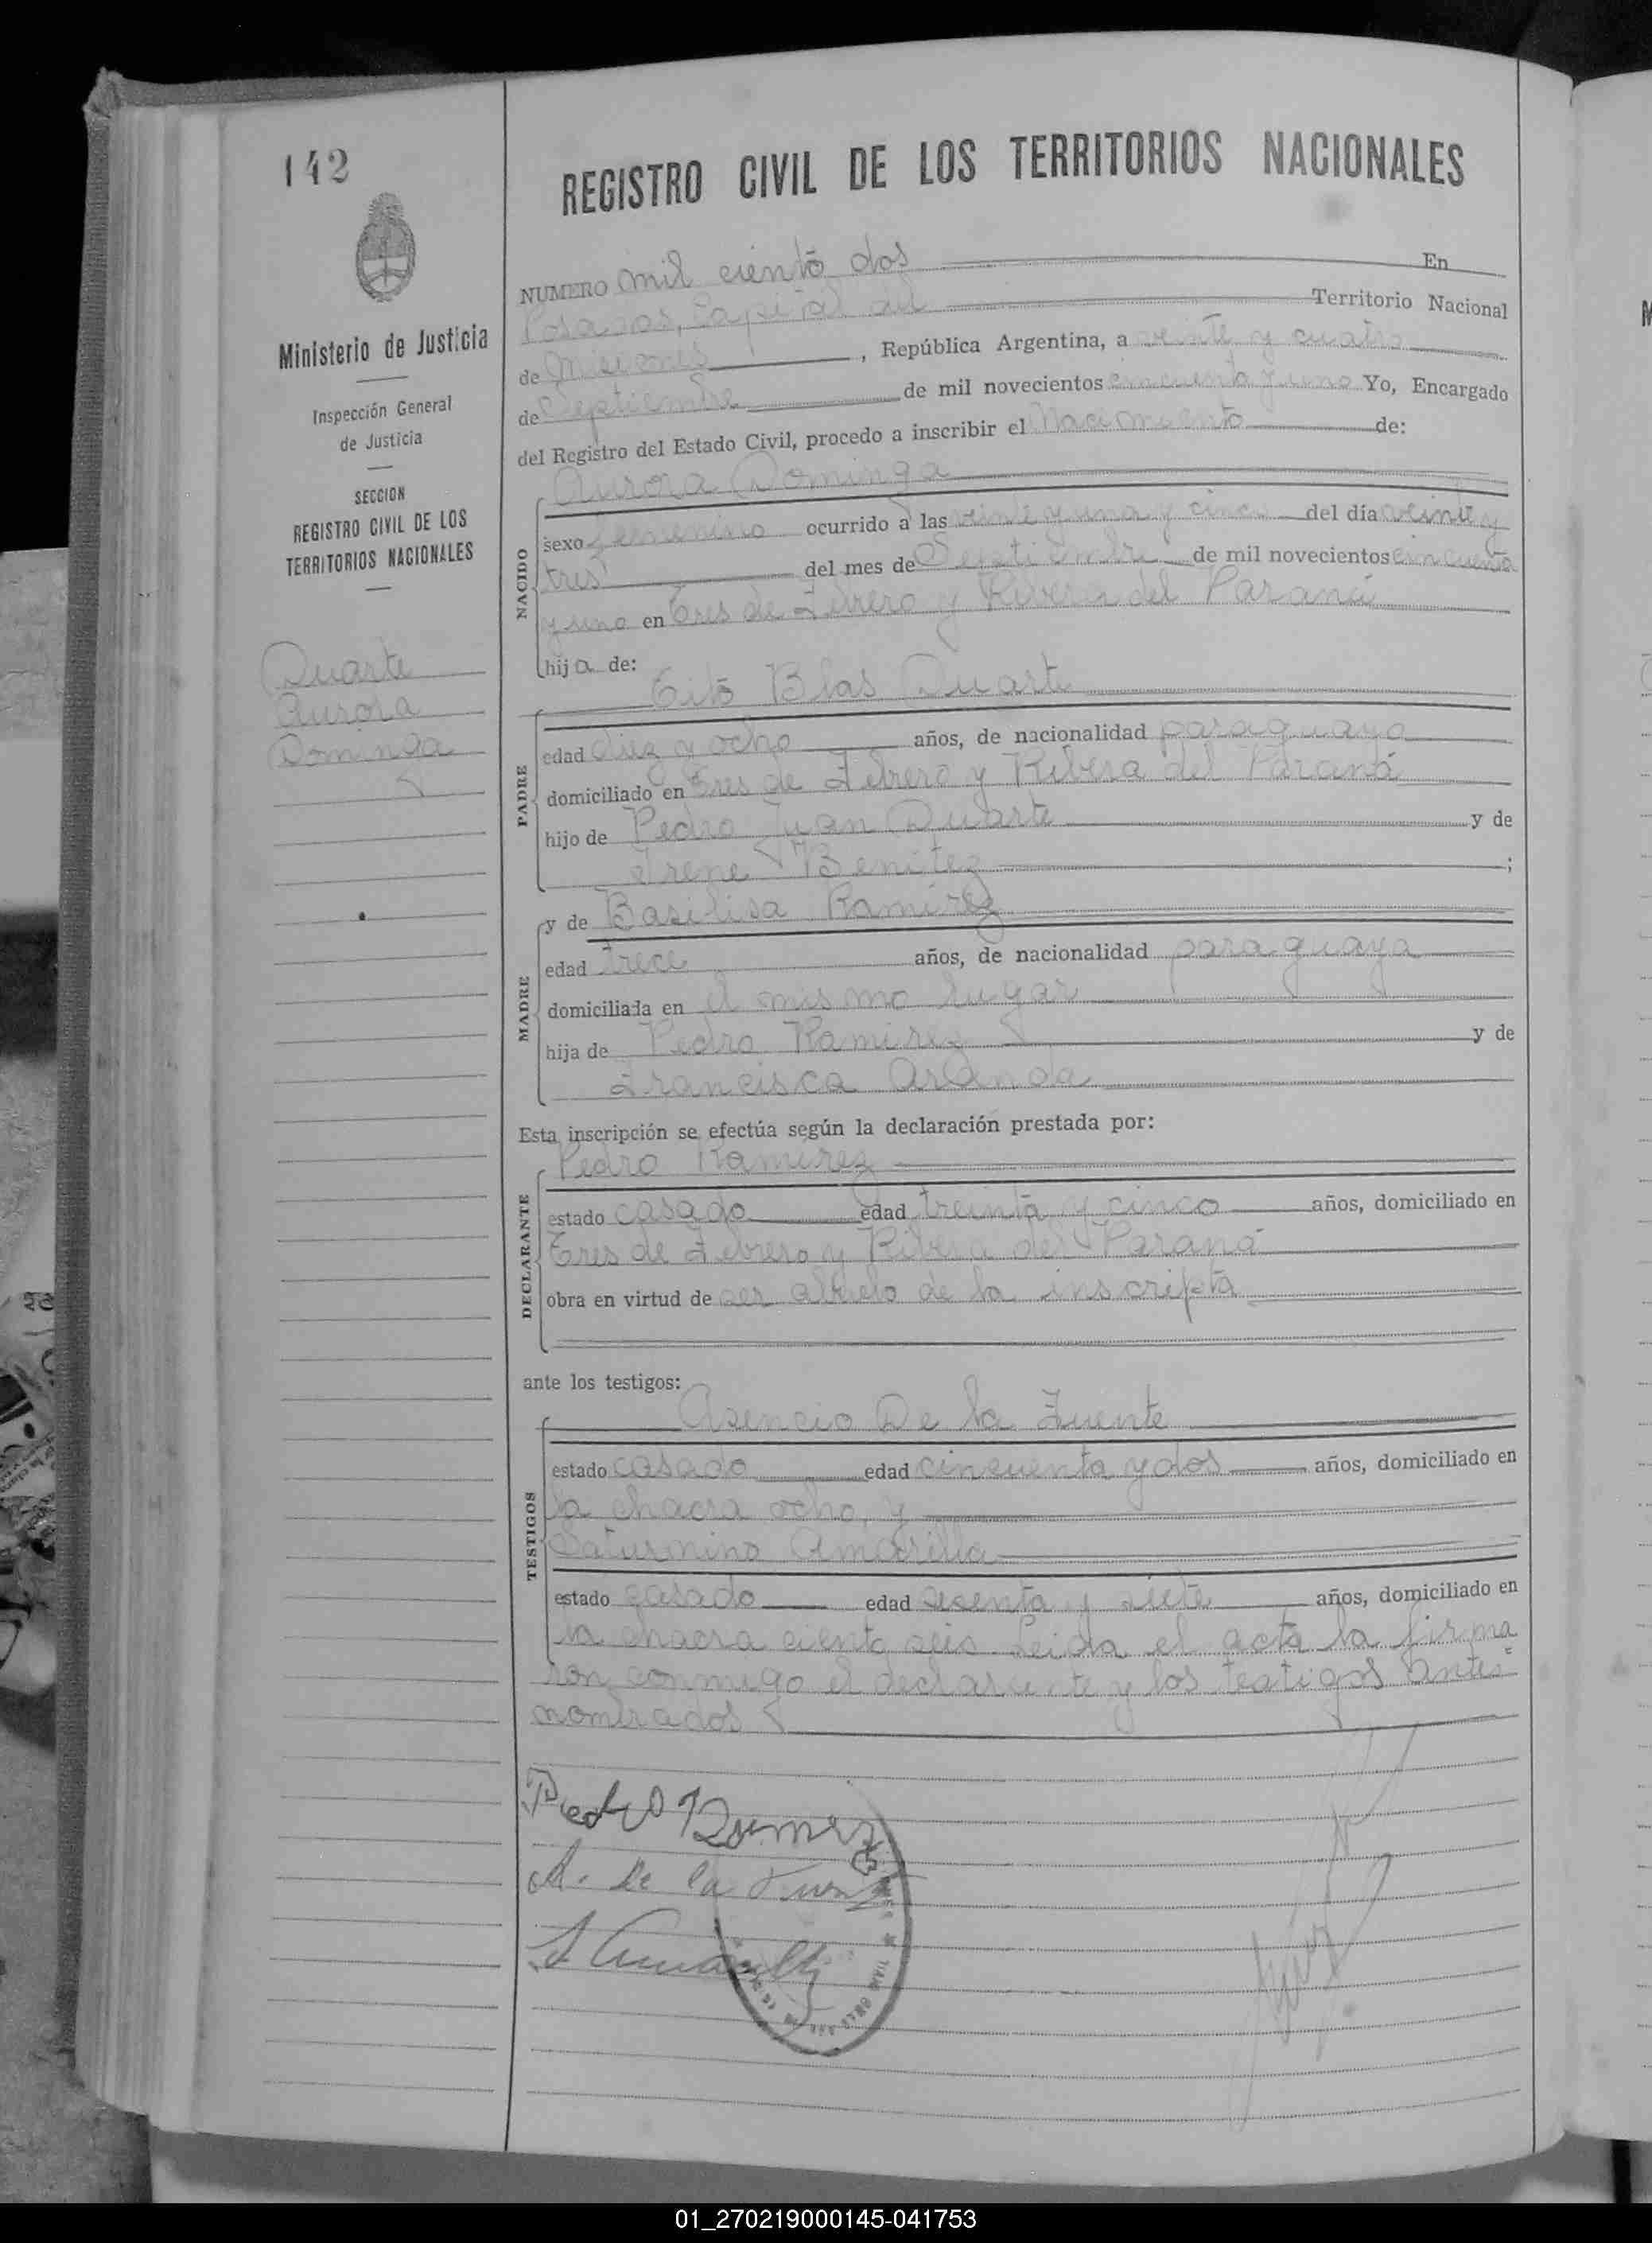 142
REGISTRO CIVIL DE LOS TERRITORIOS NACIONALES
Ministerio de Justicia
Inspección General
de Justicia
SECCION
REGISTRO CIVIL DE LOS
TERRITORIOS NACIONALES
Duarte
Aurora
Dominga
NUMERO mil ciento dos En
Posadas, Capital del Territorio Nacional
de Misiones, República Argentina, a veinte y cuatro
de Septiembre de mil novecientos cincuenta y uno Yo, Encargado
del Registro del Estado Civil, procedo a inscribir el Nacimiento de:
Aurora Dominga
NACIDO
sexo femenino ocurrido a las veinte y una y cinco del día veinte y
tres del mes de Septiembre de mil novecientos cincuenta
y uno en Tres de Febrero y Rivera del Paraná
hija de:
Tito Blas Duarte
PADRE
edad diez y ocho años, de nacionalidad paraguayo
domiciliado en Tres de Febrero y Ribera del Paraná
hijo de Pedro Juan Duarte y de
Irene Benitez ;
MADRE
y de Basilisa Ramirez
edad trece años, de nacionalidad paraguaya
domiciliada en el mismo lugar
hija de Pedro Ramirez y de
Francisca Aranda
Esta inscripción se efectúa según la declaración prestada por:
Pedro Ramirez
DECLARANTE
estado casado edad treinta y cinco años, domiciliado en
Tres de Febrero y Ribera del Paraná
obra en virtud de ser abuelo de la inscripta
ante los testigos:
Asencio De la Fuente
TESTIGOS
estado casado edad cincuenta y dos años, domiciliado en
la chacra ocho, y
Saturnino Amarilla
estado casado edad sesenta y siete años, domiciliado en
la chacra ciento seis. Leida el acta la firma
ron conmigo el declarante y los testigos ante=
nombrados
Pedro Ramirez
A. de la Fuente
S Amarilla
01_270219000145-041753